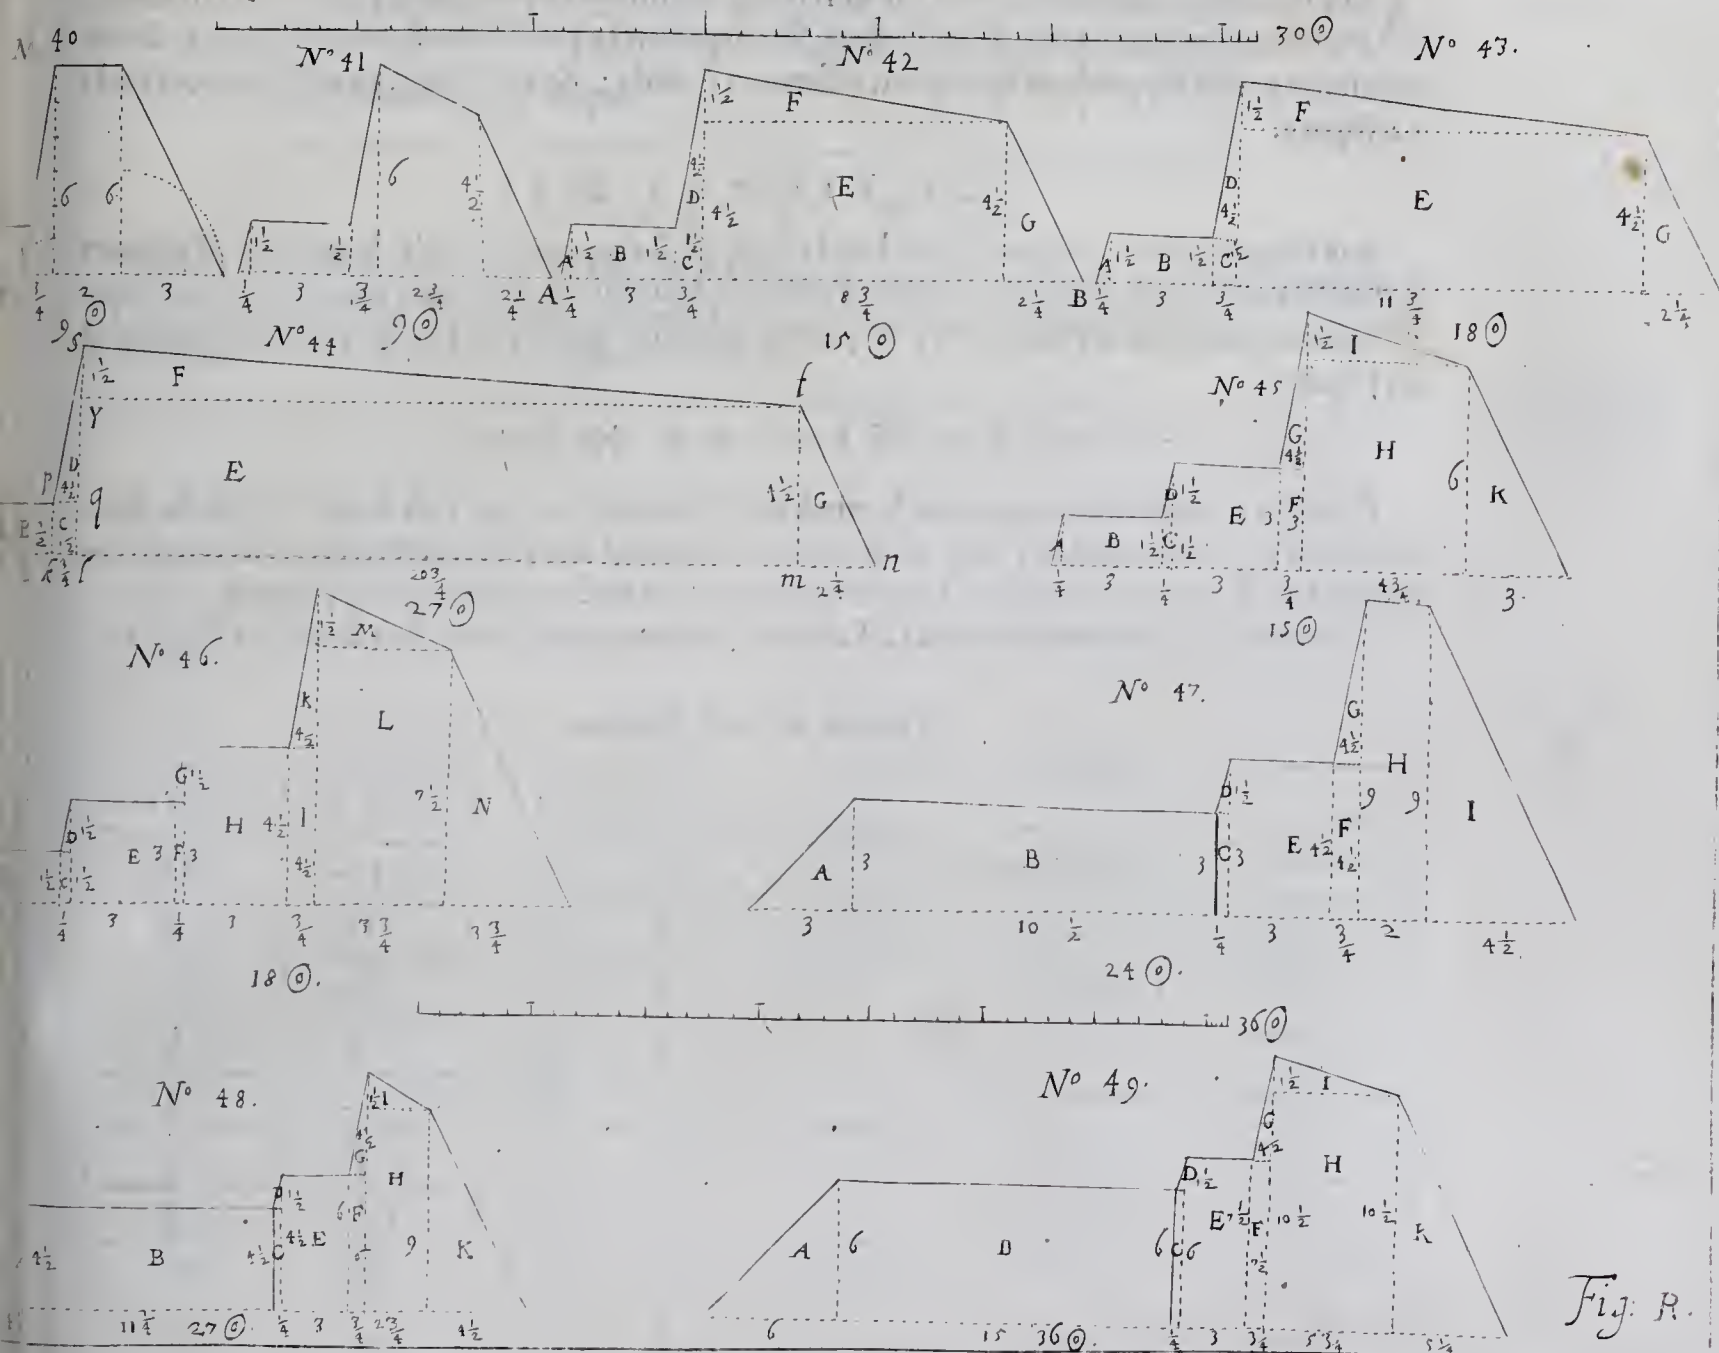 30⊙
40
N° 41
N° 42
N° 43.
6 6
3/4 2 3
9⊙
1 1/2 1 1/2 6 4 1/2
1/4 3 3/4 2 3/4 2 1/4
9⊙
1 1/2 F
4 1/2 D 4 1/2 E 4 1/2 G
A 1 1/2 B 1 1/2 1 1/2 C
A 1/4 3 3/4 8 3/4 2 1/4 B
15⊙
1 1/2 F
D 4 1/2 E 4 1/2 G
A 1 1/2 B 1 1/2 C 1 1/2
1/4 3 3/4 11 3/4 2 1/4
18⊙
N° 44
s 1 1/2 F f
Y
p D 4 1/2 q E 4 1/2 G
1 1/2 C 1 1/2
k 3/4 l 20 3/4 m 2 1/4 n
27⊙
N° 45
1 1/2 I
G 4 1/2 H 6 K
D 1 1/2 E 3 F 3
A B 1 1/2 C 1 1/2
1/4 3 1/4 3 3/4 4 3/4 3
15⊙
N° 46.
1 1/2 M
K 4 1/2 L
G 1 1/2 7 1/2 N
D 1 1/2 E 3 F 3 H 4 1/2 I 4 1/2
1 1/2 C 1 1/2
1/4 3 1/4 3 3/4 3 3/4 3 3/4
18⊙.
N° 47.
G 4 1/2 H
D 1 1/2 9 9 I
A 3 B 3 C 3 E 4 1/2 F 4 1/2
3 10 1/2 1/4 3 3/4 2 4 1/2.
24⊙.
36⊙
N° 48.
1 1/2 I
4 1/2 G H
D 1 1/2 6 F
4 1/2 B 4 1/2 C 4 1/2 E 9 K
11 1/4 27⊙. 1/4 3 3/4 2 3/4 4 1/2
N° 49.
1 1/2 I
G 4 1/2 H
D 1 1/2 E 7 1/2 F 10 1/2 10 1/2 K
A 6 B 6 C 6 7 1/2
6 15 36⊙. 1/4 3 3/4 5 3/4 5 1/4
Fig: R.